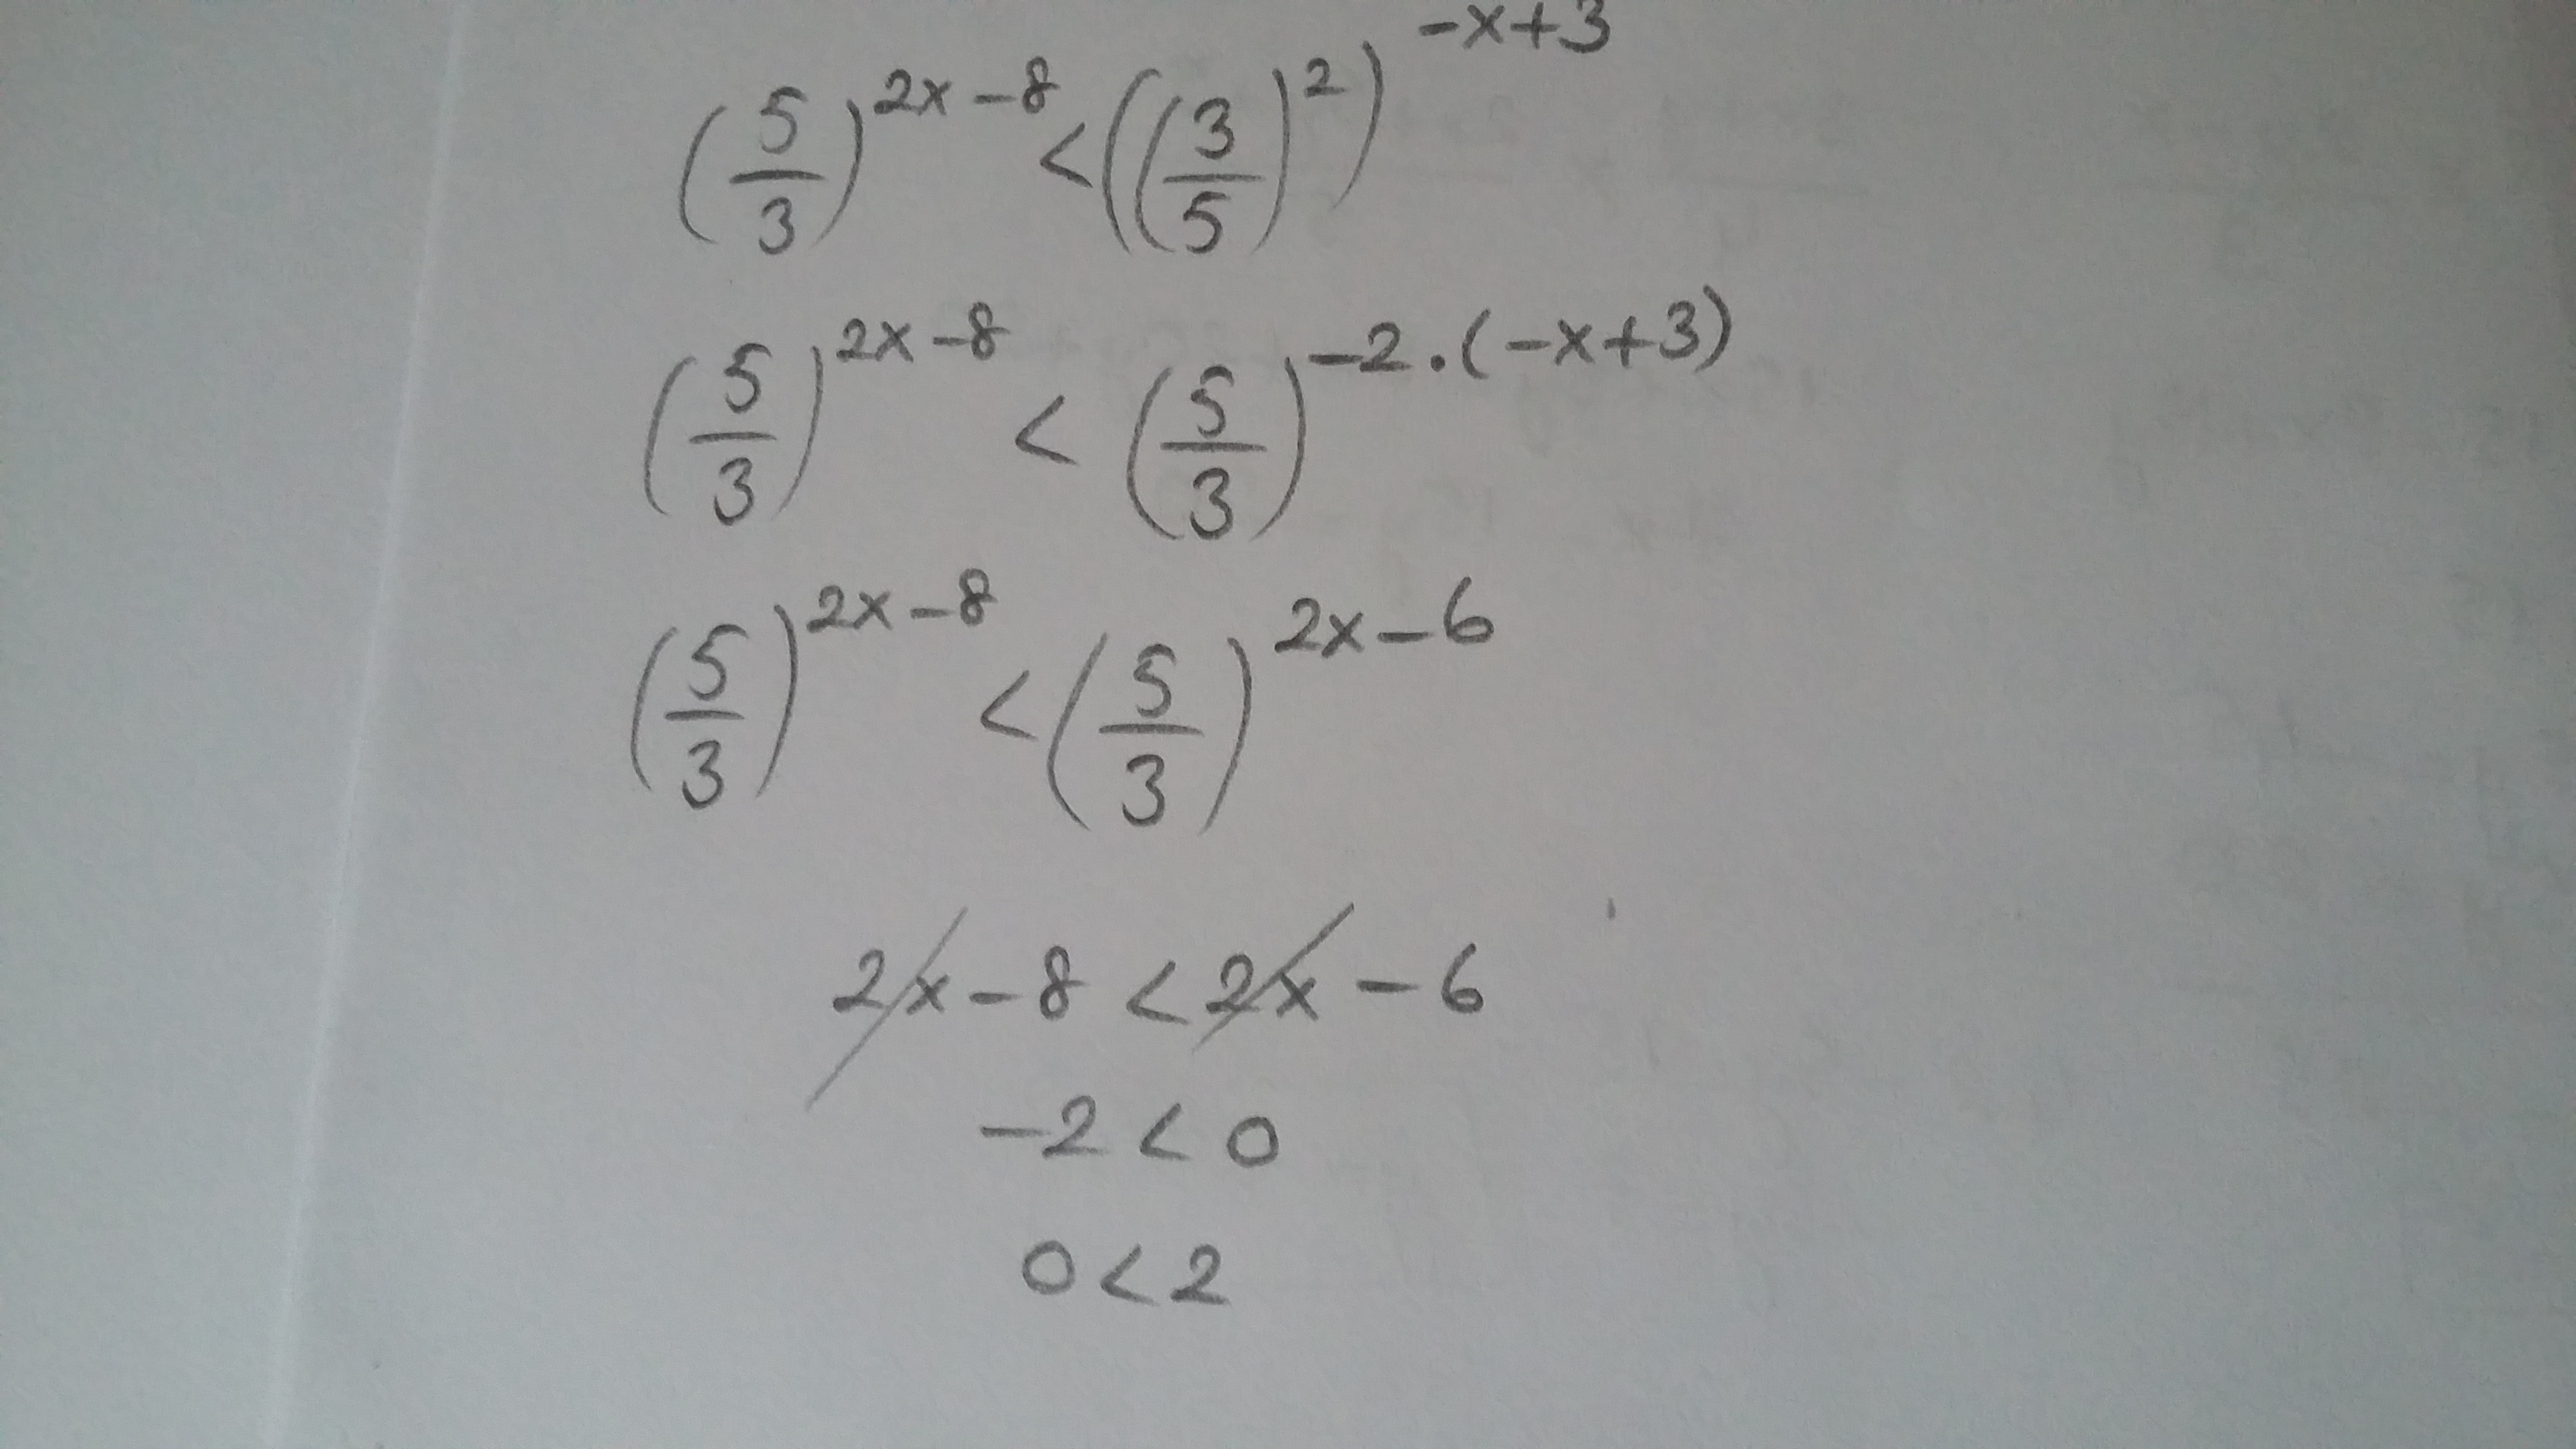 (5/3)^(2x-8) < ((3/5)^2)^(-x+3)
(5/3)^(2x-8) < (5/3)^(-2.(-x+3))
(5/3)^(2x-8) < (5/3)^(2x-6)
2x-8 < 2x-6
-2 < 0
0 < 2